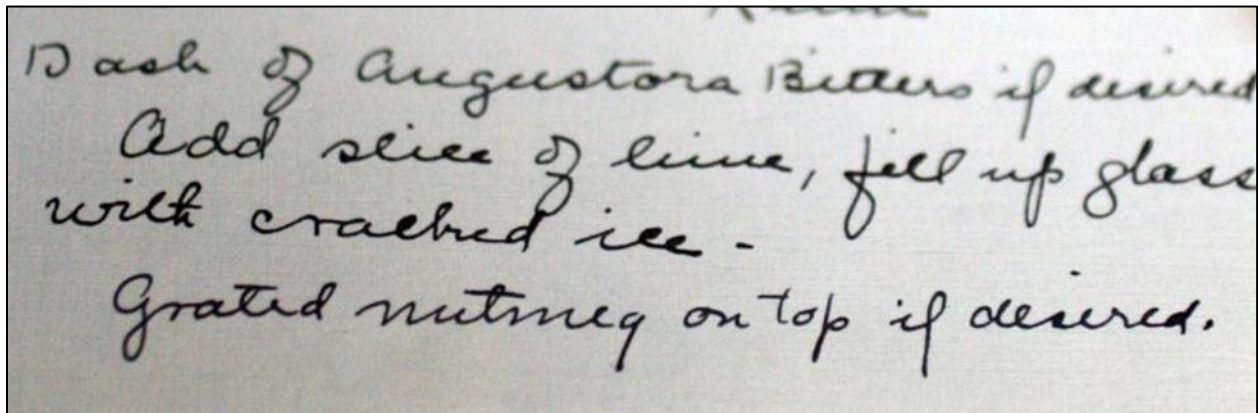 Dash of Augustora Bitters if desired
Add slice of lime, fill up glass
with cracked ice -
Grated nutmeg on top if desired.